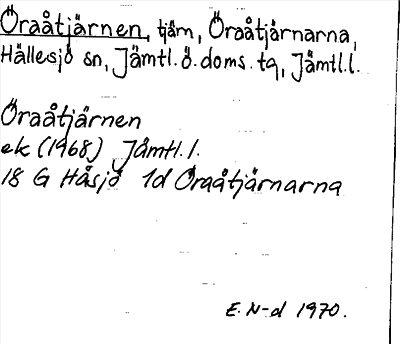 Öraåtjärnen, tjärn, Öraåtjärnarna,
Hällesjö sn, Jämtl. ö. doms. tg, Jämtl. l.
Öraåtjärnen
ek (1968) Jämtl. l.
18 G Håsjö 1d Öraåtjärnarna
E. N-d 1970.